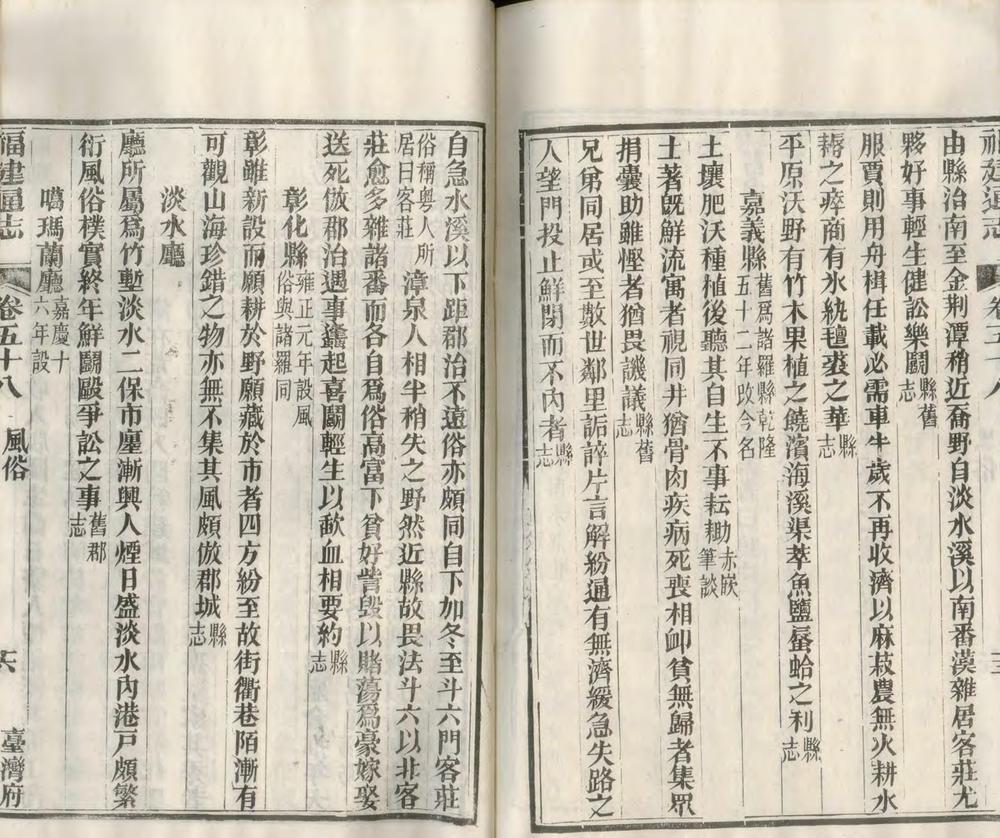 福建通志 卷五十八
由縣治南至金荆潭稍近喬野自淡水溪以南番漢雜居客莊尤
夥好事輕生健訟樂鬭縣舊志
服賈則用舟楫任載必需車牛歲不再收濟以麻菽農無火耕水
耨之瘁商有氷紈氊裘之華縣志
平原沃野有竹木果植之饒濱海溪渠萃魚鹽蜃蛤之利縣志
嘉義縣舊爲諸羅縣乾隆五十二年改今名
土壤肥沃種植後聽其自生不事耘耡赤嵌筆談
土著旣鮮流寓者視同井猶骨肉疾病死喪相卹貧無歸者集眾
捐囊助雖慳者猶畏譏議縣舊志
兄弟同居或至數世鄰里詬誶片言解紛通有無濟緩急失路之
人望門投止鮮閉而不內者縣志
自急水溪以下距郡治不遠俗亦頗同自下加冬至斗六門客莊
俗稱粤人所居曰客莊漳泉人相半稍失之野然近縣故畏法斗六以北客
莊愈多雜諸番而各自爲俗高富下貧好訾毁以賭蕩爲豪嫁娶
送死倣郡治遇事蠭起喜鬭輕生以歃血相要約縣志
彰化縣雍正元年設風俗與諸羅同
彰雖新設而願耕於野願藏於市者四方紛至故街衢巷陌漸有
可觀山海珍錯之物亦無不集其風頗倣郡城縣志
淡水廳
廳所屬爲竹塹淡水二保市廛漸興人煙日盛淡水內港戸頗繁
衍風俗樸實終年鮮鬭毆爭訟之事舊郡志
噶瑪蘭廳嘉慶十六年設
福建通志 卷五十八 風俗 臺灣府